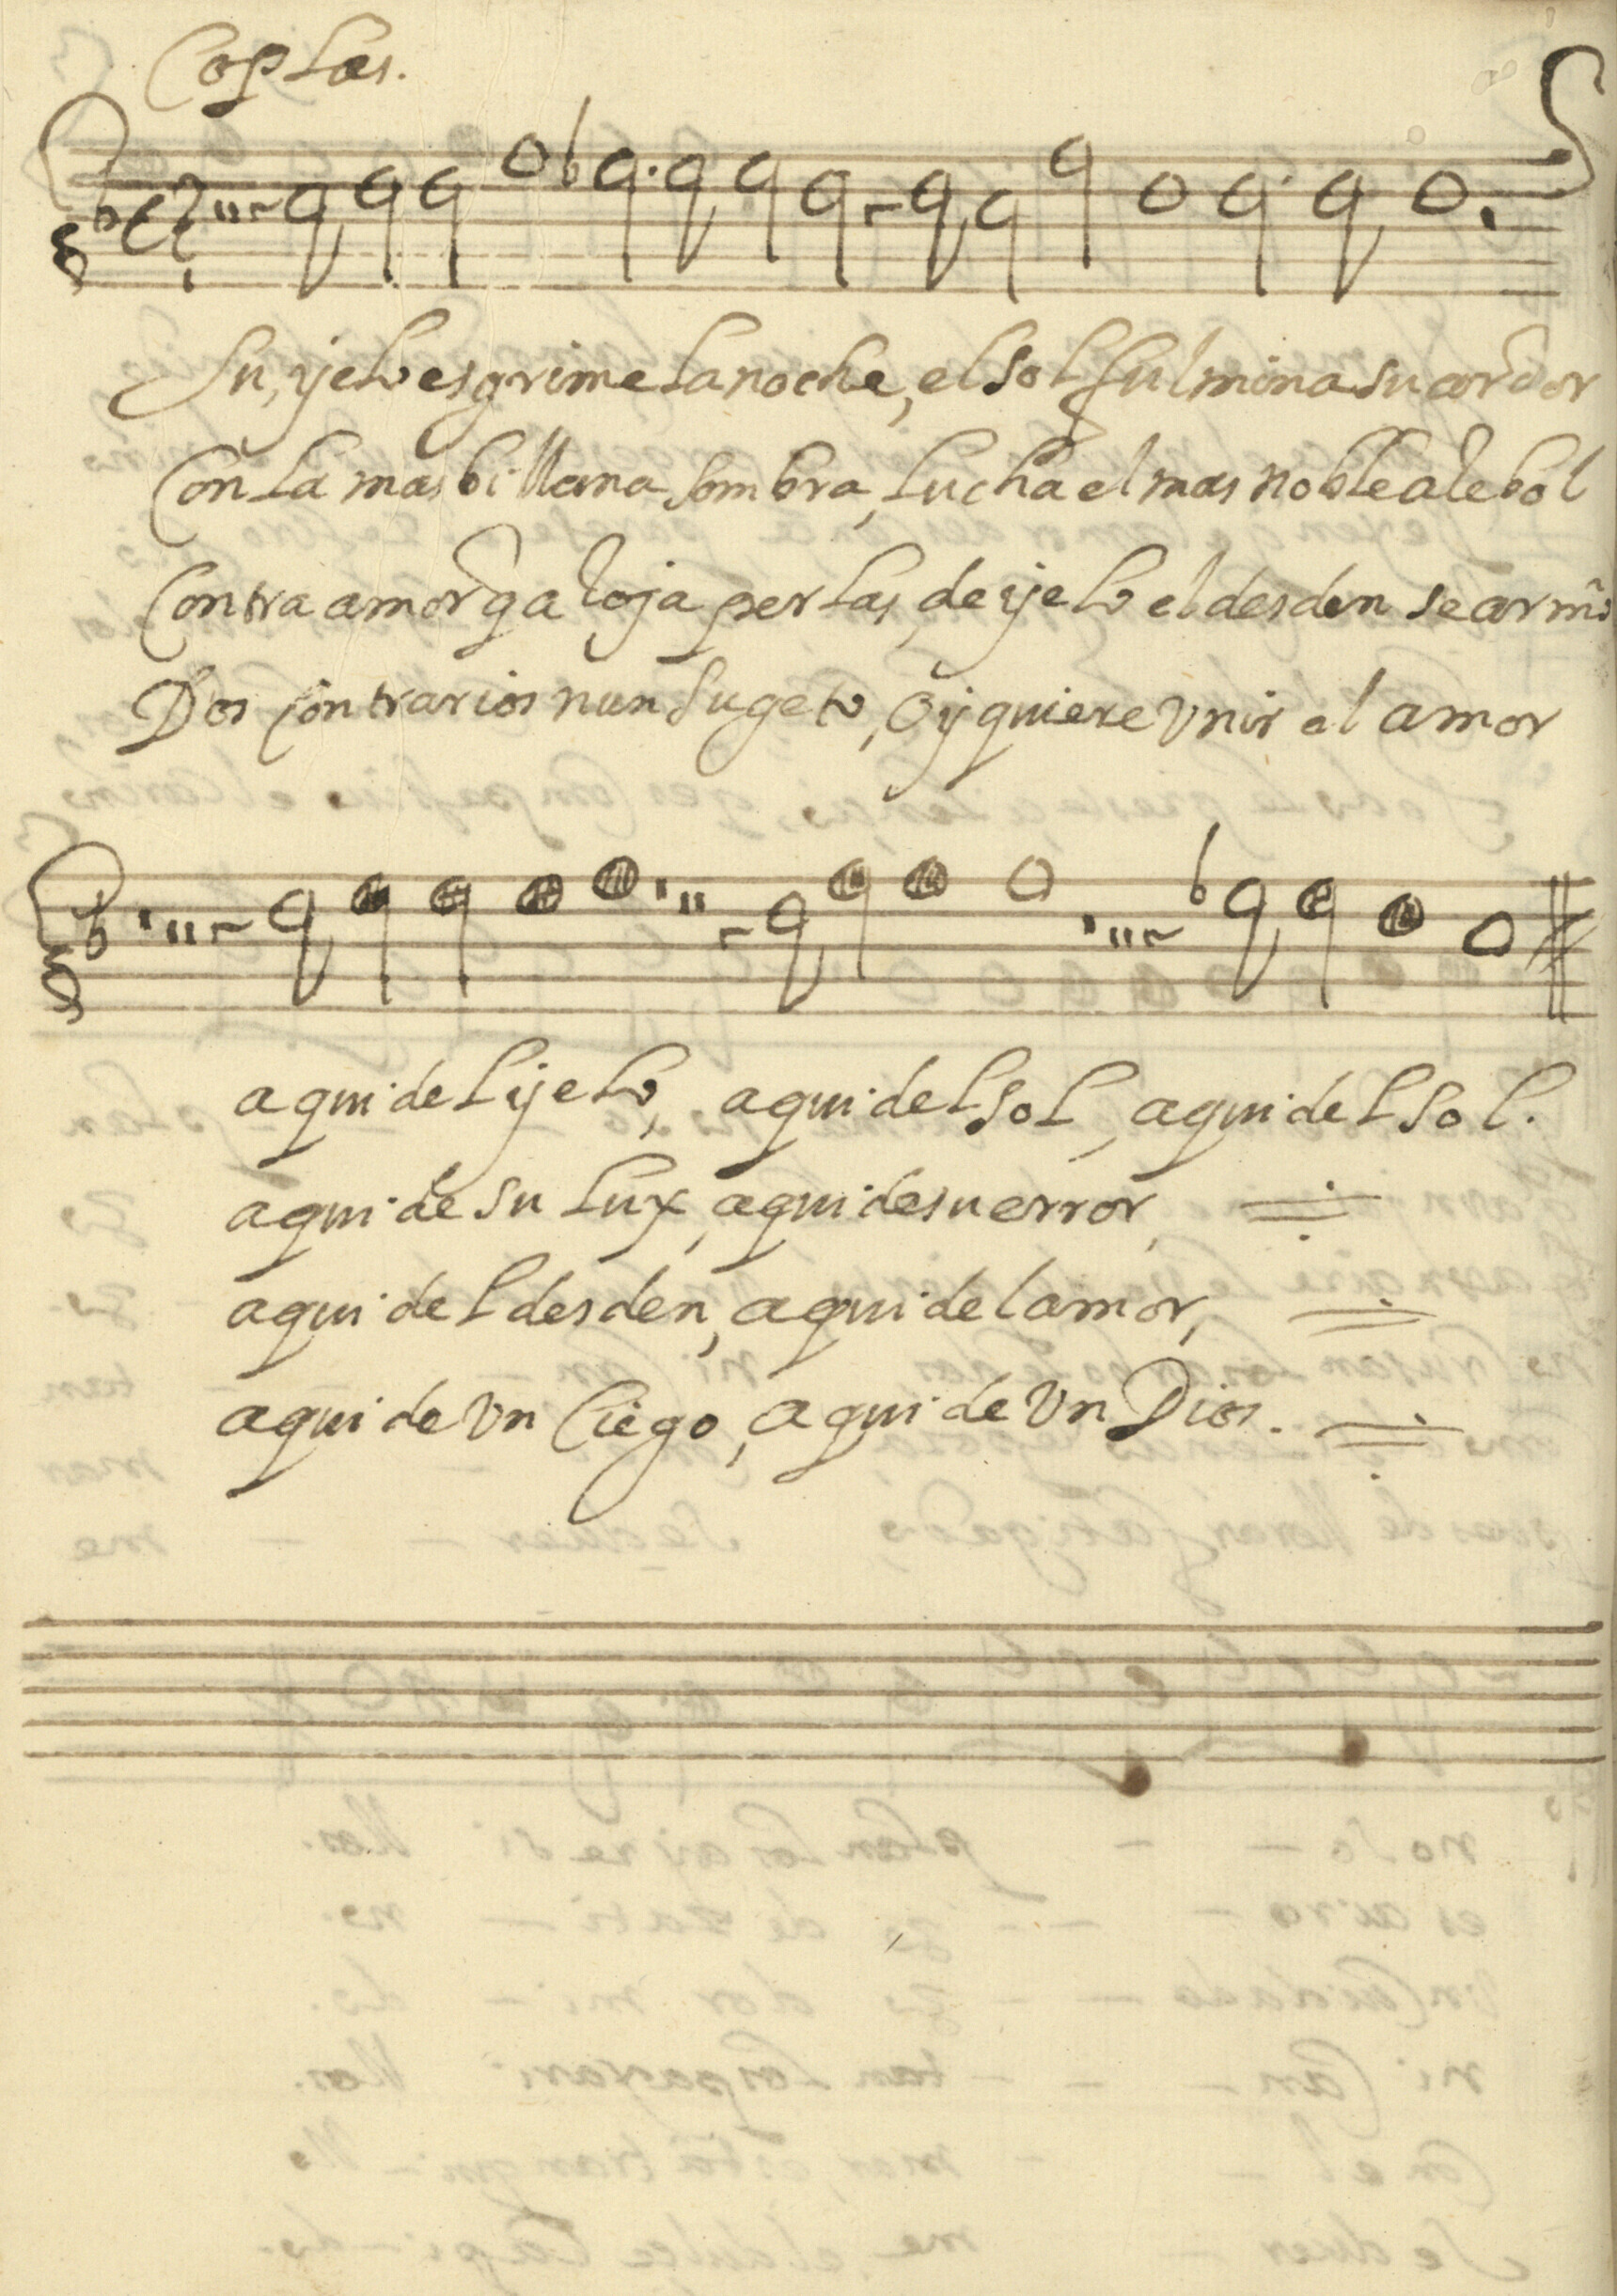 Coplas.
Su yelo esgrime la noche, el sol fulmina su ardor
Con la mas billana sombra, lucha el mas noble arebol
Contra amor q aroja perlas, de yelo el desden se armo
Dos contrarios nun sugeto, oy quiere vnir el amor
aqui del yelo, aqui del sol, aqui del sol.
aqui de su lux, aqui de su error,
aqui del desden, aqui del amor,
aqui de vn Ciego, aqui de vn Dios.